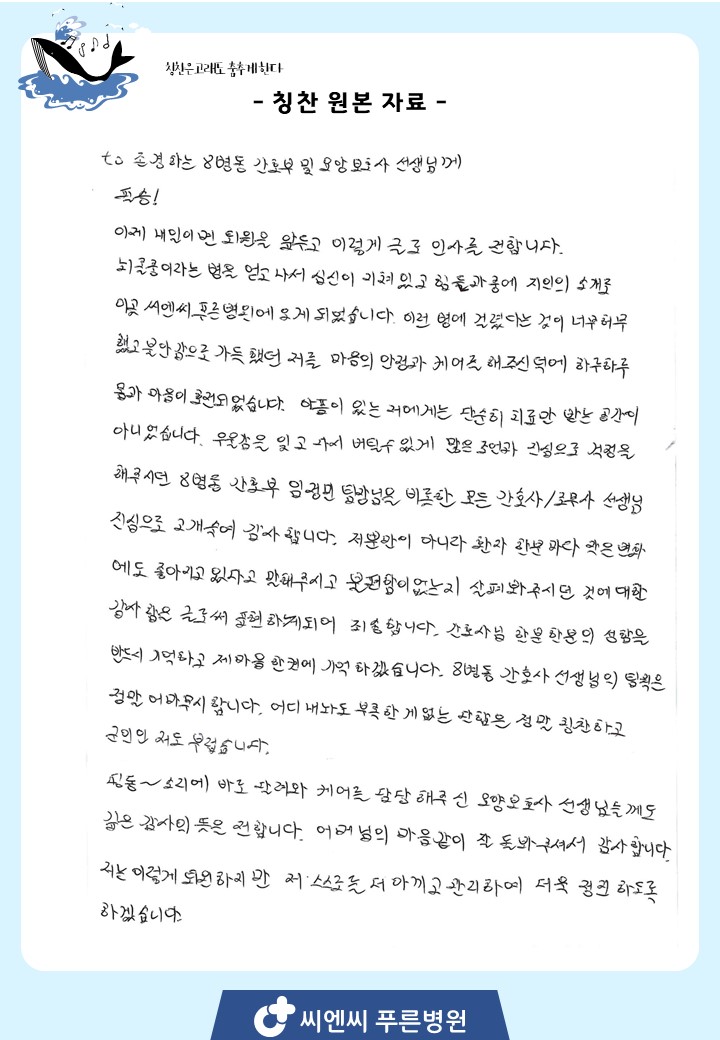 칭찬은 고래도 춤추게 한다
- 칭찬 원본 자료 -
to 존경하는 8병동 간호부 및 요양보호사 선생님께
필승!
이제 내일이면 퇴원을 앞두고 이렇게 글로 인사를 전합니다.
뇌졸중이라는 병을 얻고 나서 심신이 지쳐있고 힘들 과중에 지인의 소개로
이곳 씨엔씨 푸른병원에 오게 되었습니다. 이런 병에 걸렸다는 것이 너무 허무
했고 불안감으로 가득했던 저를 마음의 안정과 케어를 해주신 덕에 하루하루
몸과 마음이 호전되었습니다. 아픔이 있는 저에게는 단순히 치료만 받는 공간이
아니었습니다. 우울함을 잊고 다시 버틸수 있게 많은 조언과 진심으로 걱정을
해주시던 8병동 간호부 팀장님을 비롯한 모든 간호사/조무사 선생님
진심으로 고개숙여 감사합니다. 저뿐만이 아니라 환자 한분 마다 작은 변화
에도 좋아지고 있다고 말해주시고 불편함이 없는지 살펴봐주시던 것에 대한
감사함을 글로써 표현하게되어 죄송합니다. 간호사님 한분 한분의 성함을
반드시 기억하고 제 마음 한켠에 기억하겠습니다. 8병동 간호사 선생님의 팀웍은
정말 어마무시합니다. 어디 내놔도 부족한 게 없는 단합은 정말 칭찬하고
군인인 저도 부럽습니다.
띵동~ 소리에 바로 달려와 케어를 담당해주신 요양보호사 선생님들께도
깊은 감사의 뜻을 전합니다. 어머님의 마음같이 잘 돌봐주셔서 감사합니다.
저는 이렇게 퇴원하지만 제 스스로를 더 아끼고 관리하여 더욱 정진하도록
하겠습니다.
씨엔씨 푸른병원